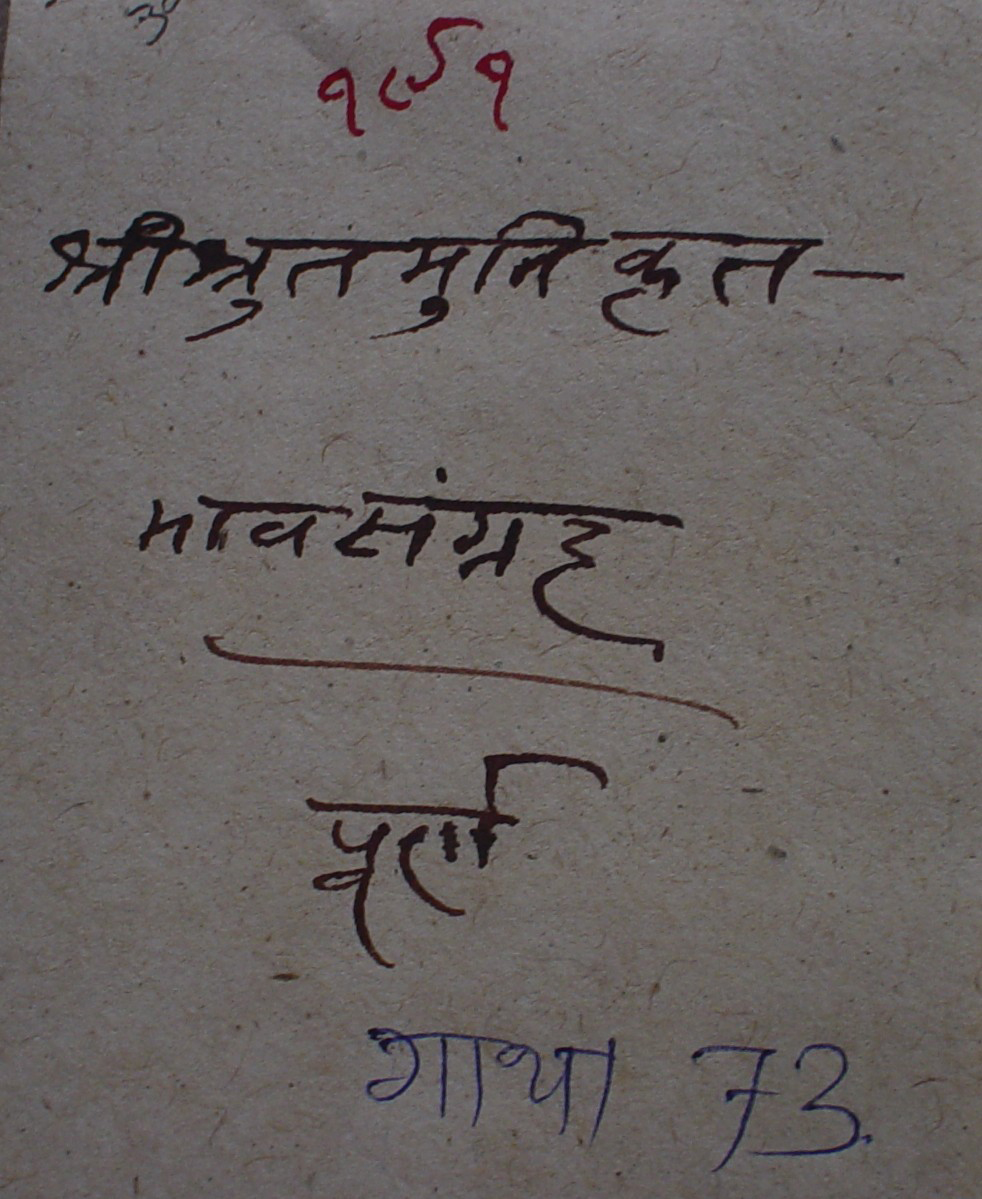 १९१
श्री श्रुत मुनि कृत —
भाव संग्रह
पूर्ण
गाथा 73.